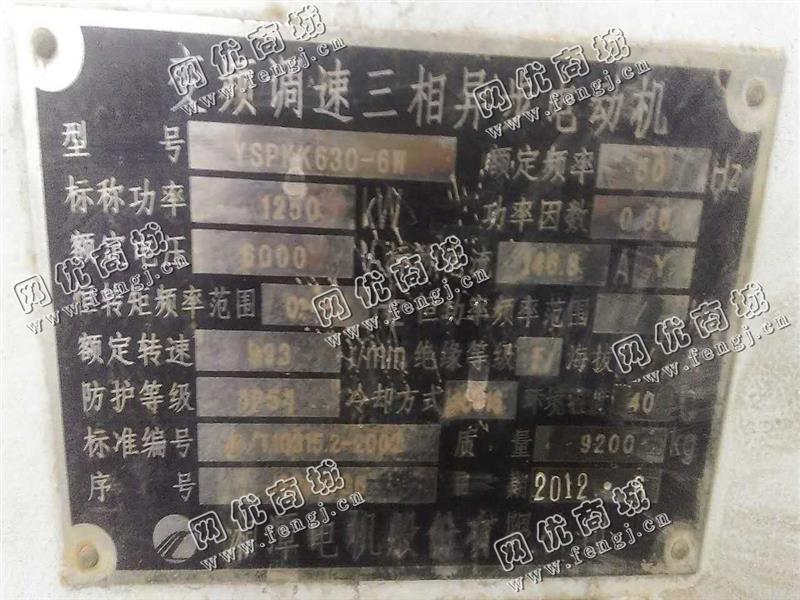 变频调速三相异步电动机
型号 YSPKK630-6W 额定频率 50 Hz
标称功率 1250 kW 功率因数
额定电压 6000 146.8 A Y
恒转矩频率范围 恒功率频率范围
额定转速 993 r/min 绝缘等级 F 海拔
防护等级 IP54 冷却方式 环境温度 40 ℃
标准编号 /T10315.2-2002 质量 9200 kg
序号 日期 2012
电机股份有限
网优商城
www.fengj.cn
网优商城
www.fengj.cn
网优商城
www.fengj.cn
网优商城
www.fengj.cn
网优商城
www.fengj.cn
网优商城
www.fengj.cn
网优商城
www.fengj.cn
网优商城
www.fengj.cn